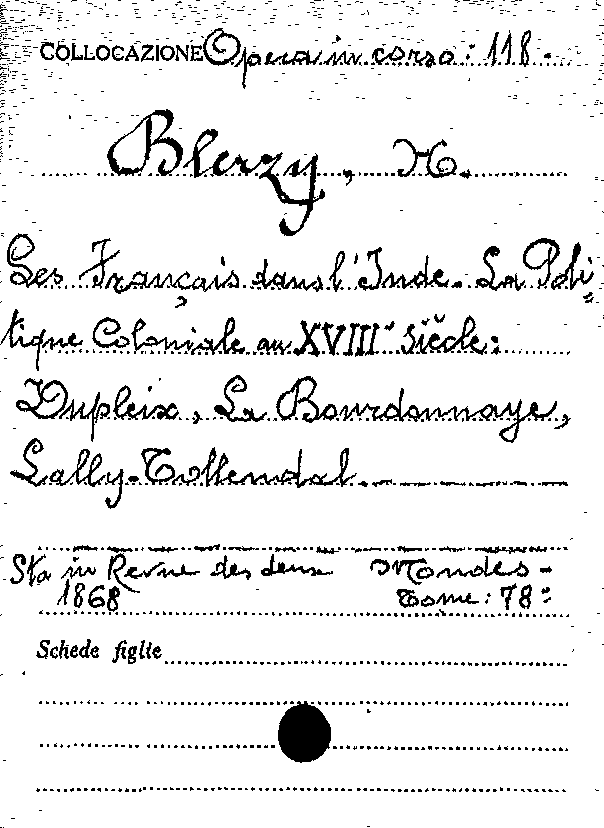 COLLOCAZIONE Opera in corso: 118.
Blerzy, H.
Les Français dans l'Inde. La Poli=
tique Coloniale au XVIII siècle:
Dupleix, La Bourdonnaye,
Lally-Tollendal.
Sta in Revue des deux Mondes -
1868 Tome: 78º
Schede figlie